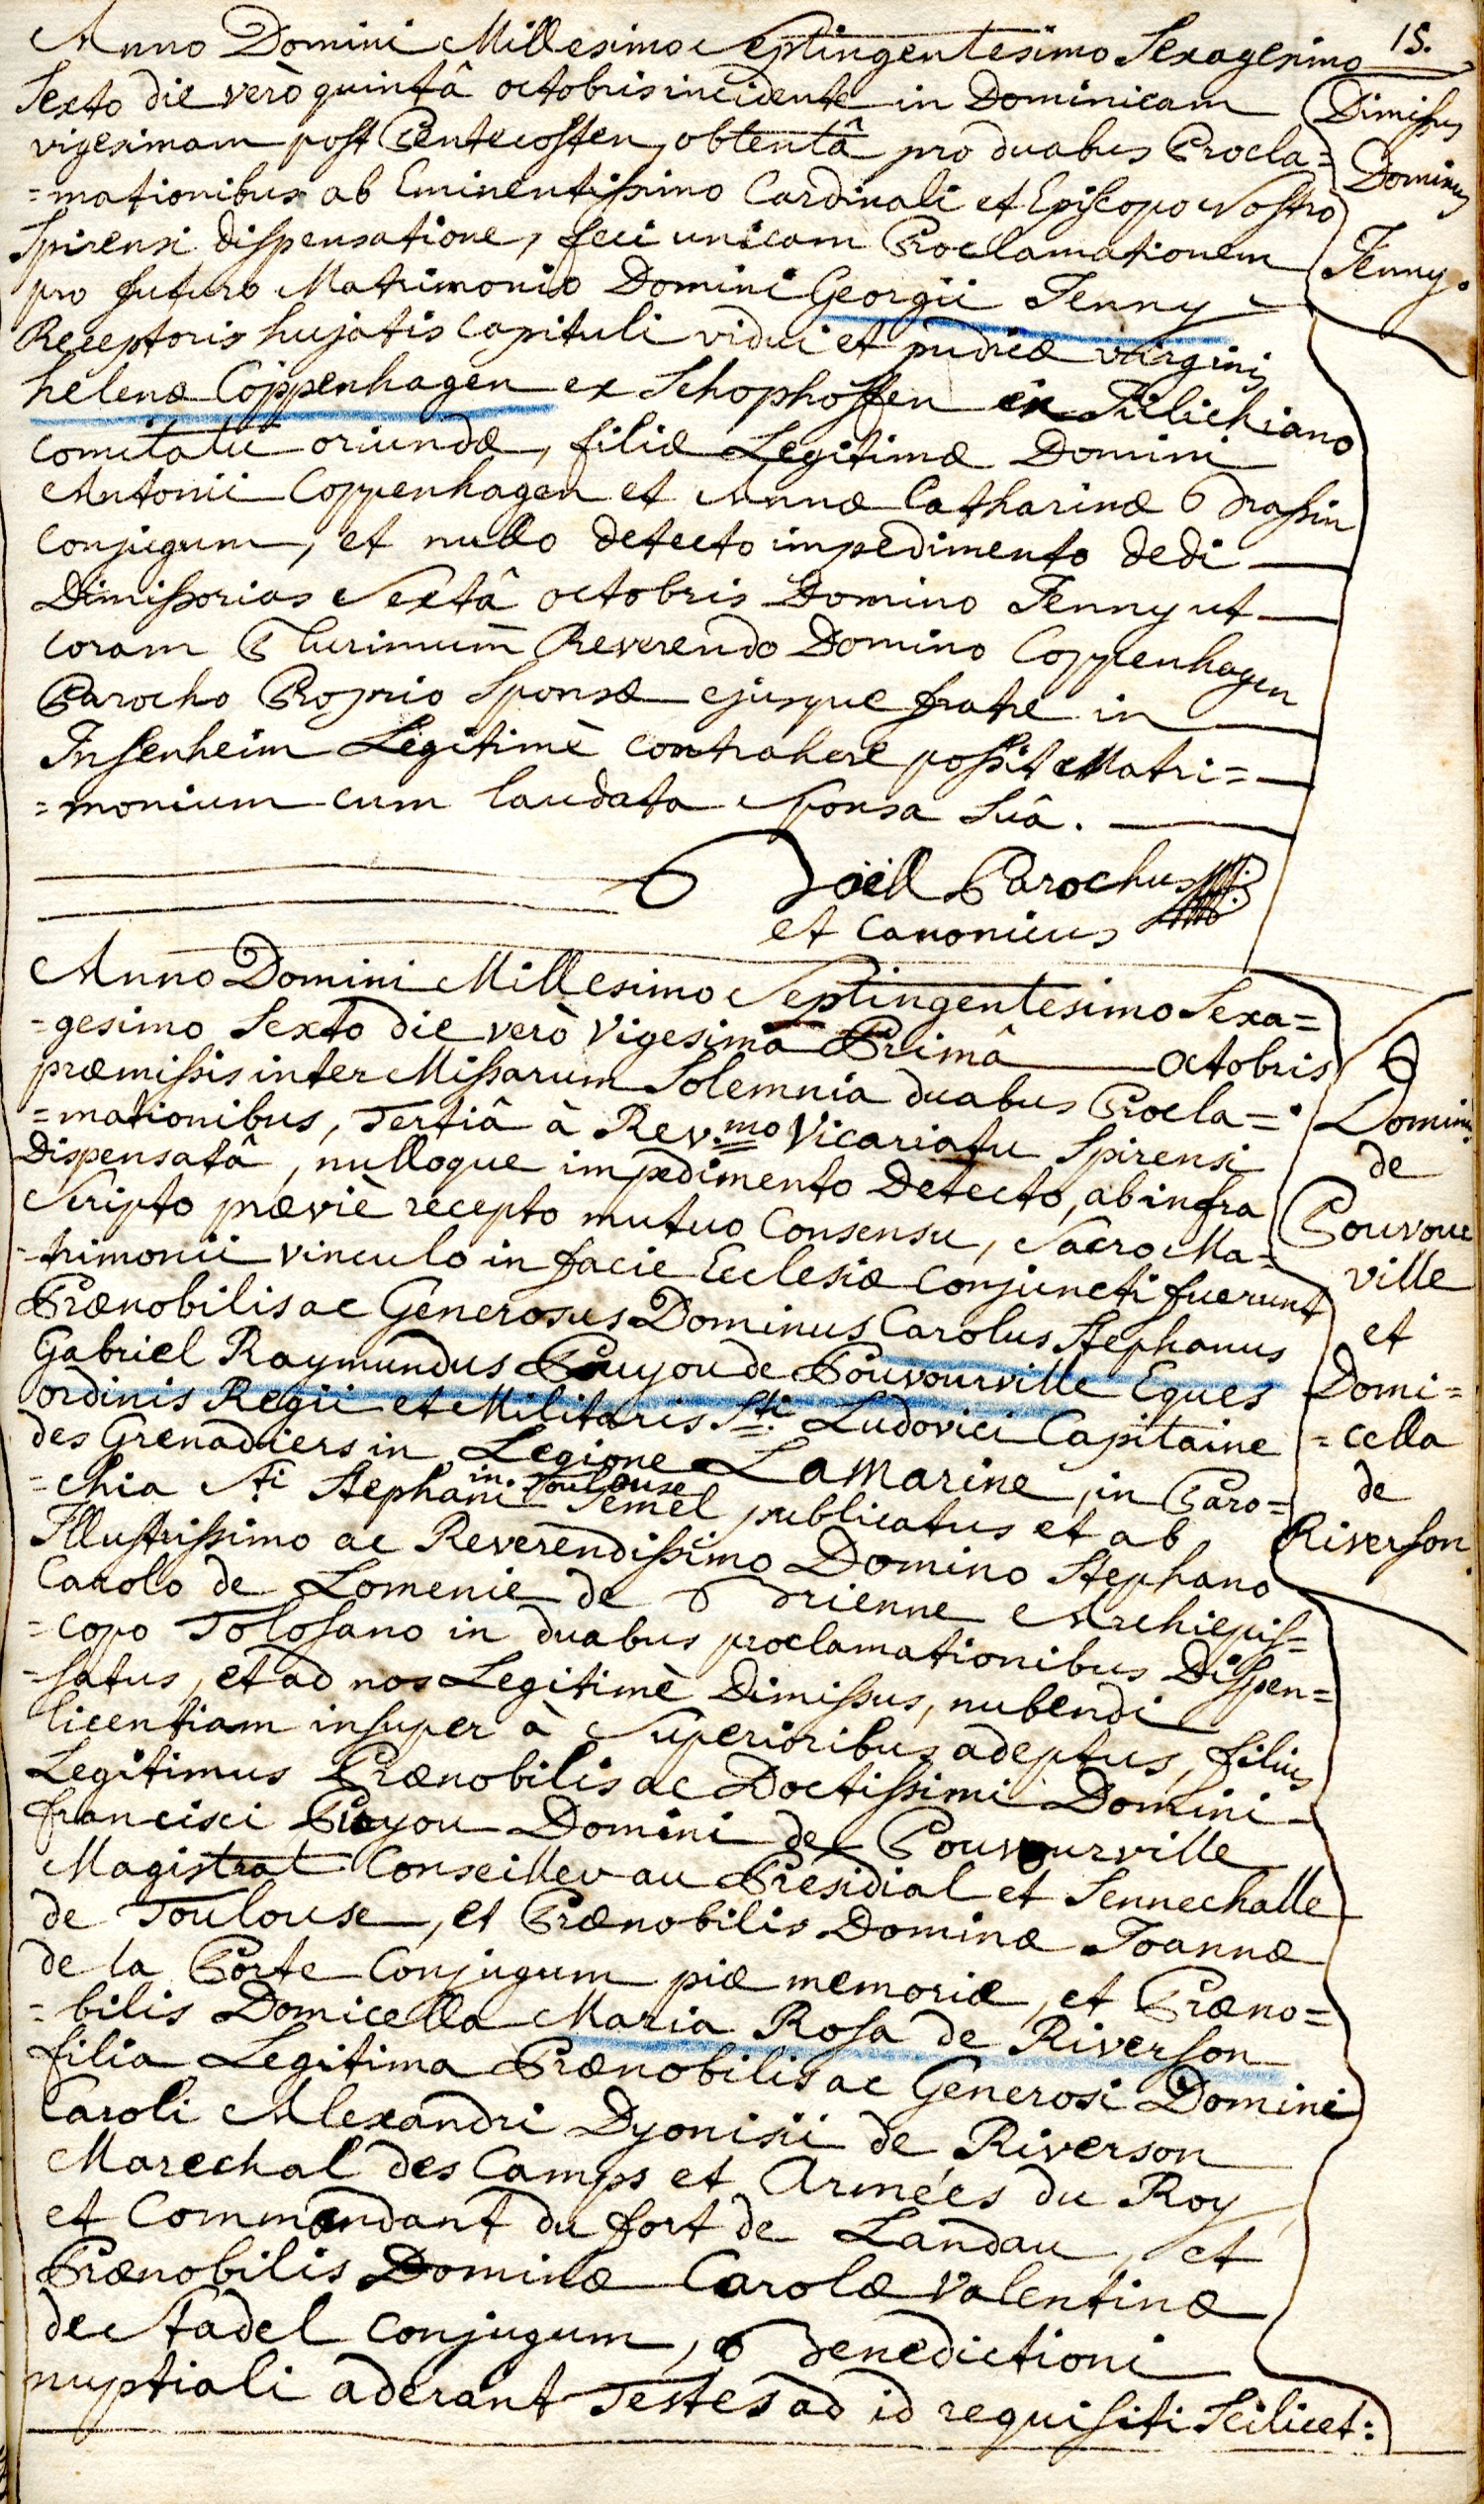 15.
Anno Domini Millesimo Septingentesimo Sexagesimo
Sexto die verò quintâ octobris incidente in Dominicam
vigesimam post Pentecosten, obtentâ pro duabus Procla=
=mationibus ab Eminentissimo Cardinali et Episcopo Nostro
Spirensi dispensatione, feci unicam Proclamationem
pro futuro Matrimonio Domini Georgii Jenny
Receptoris hujatis Capituli vidui et pudicæ virginis
helenæ Coppenhagen ex Schophoffen in Julichiano
comitatu oriundæ, filiæ Legitimæ Domini
Antonii Coppenhagen et Annæ Catharinæ Brassin
Conjugum, et nullo detecto impedimento dedi
Dimissorias Sextâ octobris Domino Jenny ut
coram Plurimum Reverendo Domino Coppenhagen
Parocho Proprio Sponsæ ejusque fratre in
Insenheim Legitimè contrahere possit Matri=
=monium cum laudata Sponsa Suâ.
Boëll Parochus
et Canonicus
Dimissus
Dominus
Jenny.
Anno Domini Millesimo Septingentesimo Sexa=
=gesimo Sexto die verò Vigesima Primâ octobris
præmissis inter Missarum Solemnia duabus Procla=
=mationibus, Tertiâ à Rev.mo Vicariatu Spirensi
Dispensatâ, nulloque impedimento Detecto, ab infra
Scripto præviè recepto mutuo Consensu, Sacro Ma=
=trimonii vinculo in facie Ecclesiæ Conjuncti fuerunt
Prænobilis ac Generosus Dominus Carolus Stephanus
Gabriel Raymundus Pouyou de Pouvourville Eques
ordinis Regii et Militaris Sti. Ludovici Capitaine
des Grenadiers in Legione La Marine, in Paro=
=chia Sti Stephani in Toulouse Semel publicatus et ab
Illustrissimo ac Reverendissimo Domino Stephano
Carolo de Lomenie de Brienne Archiepis=
=copo Tolosano in duabus proclamationibus Dispen=
=satus, et ad nos Legitimè Dimissus, nubendi
licentiam insuper à Superioribus adeptus, filius
Legitimus Prænobilis ac Doctissimi Domini
francisci Pouyou Domini de Pouvourville
Magistrat Conseiller au Presidial et Sennechalle
de Toulouse, et Prænobilis Dominæ Joannæ
de la Porte Conjugum piæ memoriæ, et Præno=
=bilis Domicella Maria Rosa de Riverson
filia Legitima Prænobilis ac Generosi Domini
Caroli Alexandri Dyonisii de Riverson
Marechal des Camps et Armées du Roy
et Commandant du fort de Landau, et
Prænobilis Dominæ Carolæ Valentinæ
de Stadel Conjugum, Benedictioni
nuptiali aderant Testes ad id requisiti Scilicet:
Dominus
de
Pouvour
ville
et
Domi=
=cella
de
Riverson.